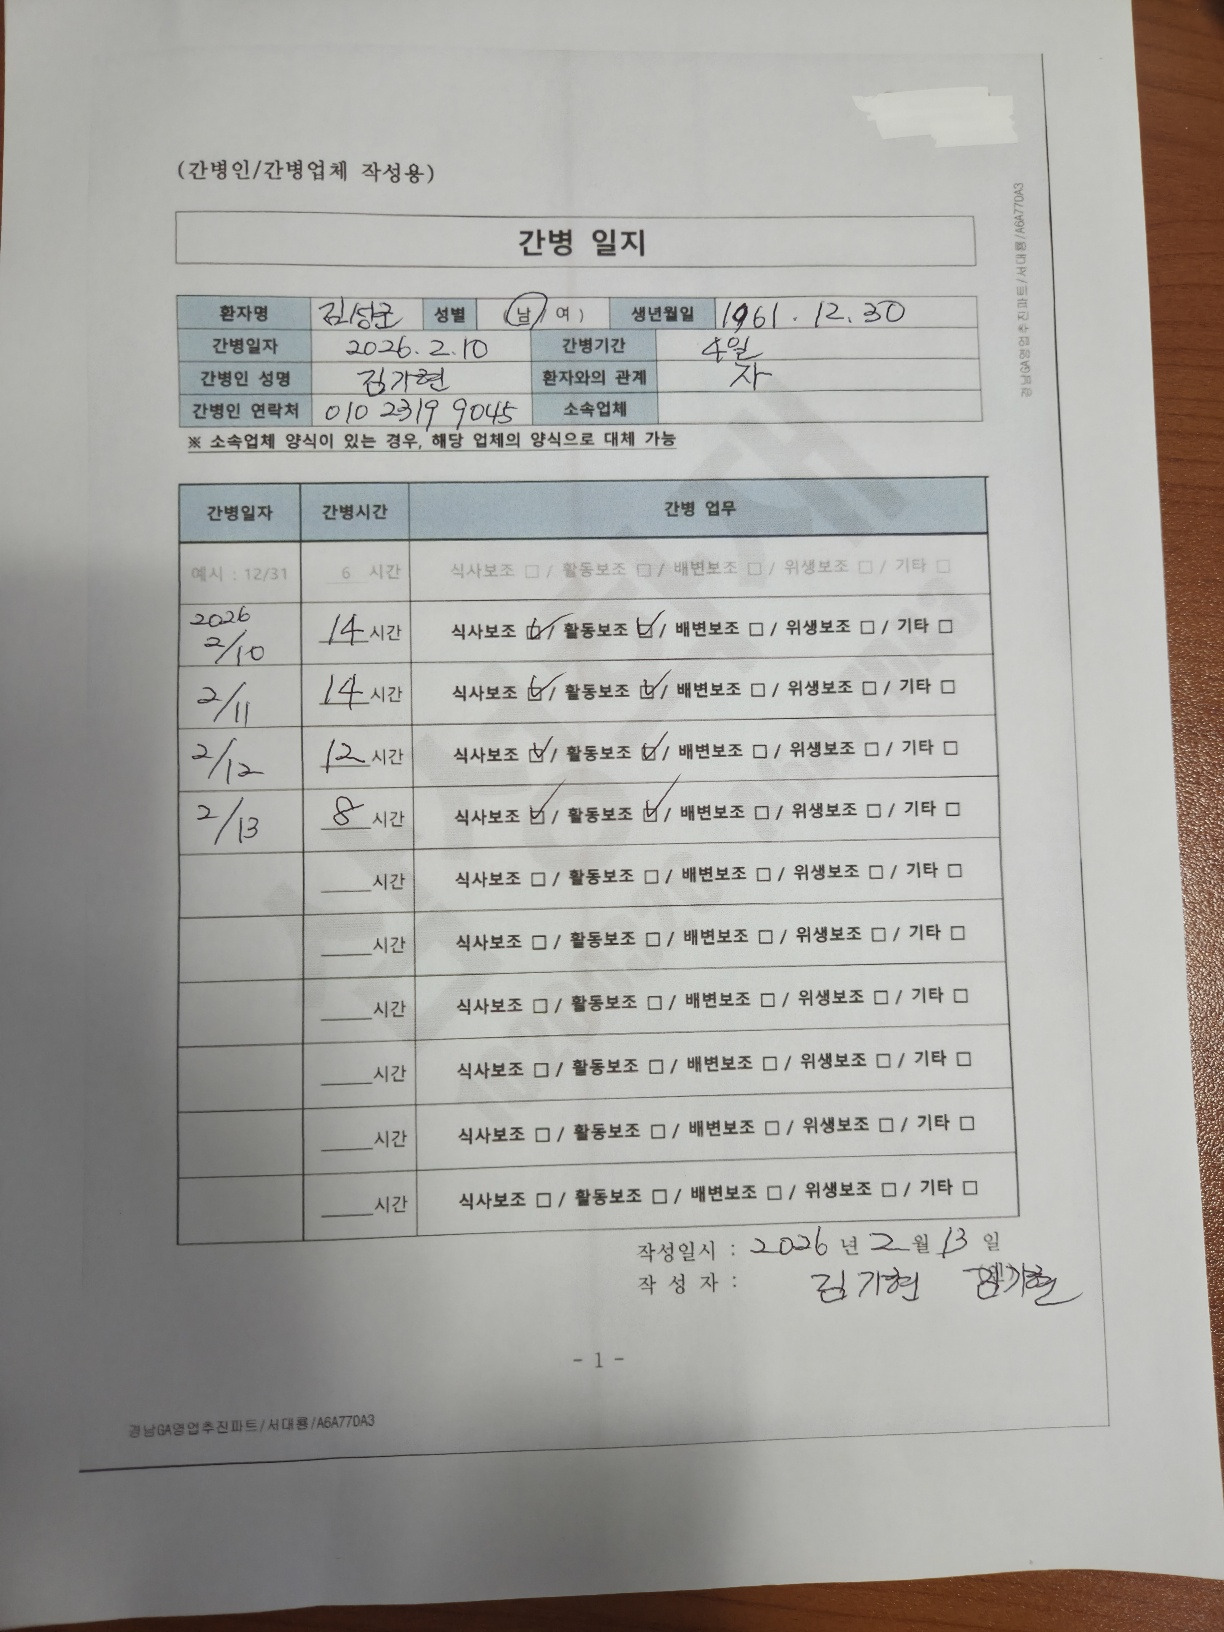 (간병인/간병업체 작성용)
간병 일지
환자명 김성군 성별 남 여 ) 생년월일 1961. 12. 30
간병일자 2026. 2. 10 간병기간 4일
간병인 성명 김기현 환자와의 관계 자
간병인 연락처 010 2319 9045 소속업체
※ 소속업체 양식이 있는 경우, 해당 업체의 양식으로 대체 가능
간병일자 간병시간 간병 업무
예시 : 12/31 6 시간 식사보조 □ / 활동보조 □ / 배변보조 □ / 위생보조 □ / 기타 □
2026
2/10 14시간 식사보조 ☑ / 활동보조 ☑ / 배변보조 □ / 위생보조 □ / 기타 □
2/11 14시간 식사보조 ☑ / 활동보조 ☑ / 배변보조 □ / 위생보조 □ / 기타 □
2/12 12시간 식사보조 ☑ / 활동보조 ☑ / 배변보조 □ / 위생보조 □ / 기타 □
2/13 8시간 식사보조 ☑ / 활동보조 ☑ / 배변보조 □ / 위생보조 □ / 기타 □
____시간 식사보조 □ / 활동보조 □ / 배변보조 □ / 위생보조 □ / 기타 □
____시간 식사보조 □ / 활동보조 □ / 배변보조 □ / 위생보조 □ / 기타 □
____시간 식사보조 □ / 활동보조 □ / 배변보조 □ / 위생보조 □ / 기타 □
____시간 식사보조 □ / 활동보조 □ / 배변보조 □ / 위생보조 □ / 기타 □
____시간 식사보조 □ / 활동보조 □ / 배변보조 □ / 위생보조 □ / 기타 □
____시간 식사보조 □ / 활동보조 □ / 배변보조 □ / 위생보조 □ / 기타 □
작성일시 : 2026 년 2 월 13 일
작 성 자 : 김기현 김기현
- 1 -
경남GA영업추진파트/서대룡/A6A770A3
경남GA영업추진파트/서대룡/A6A770A3